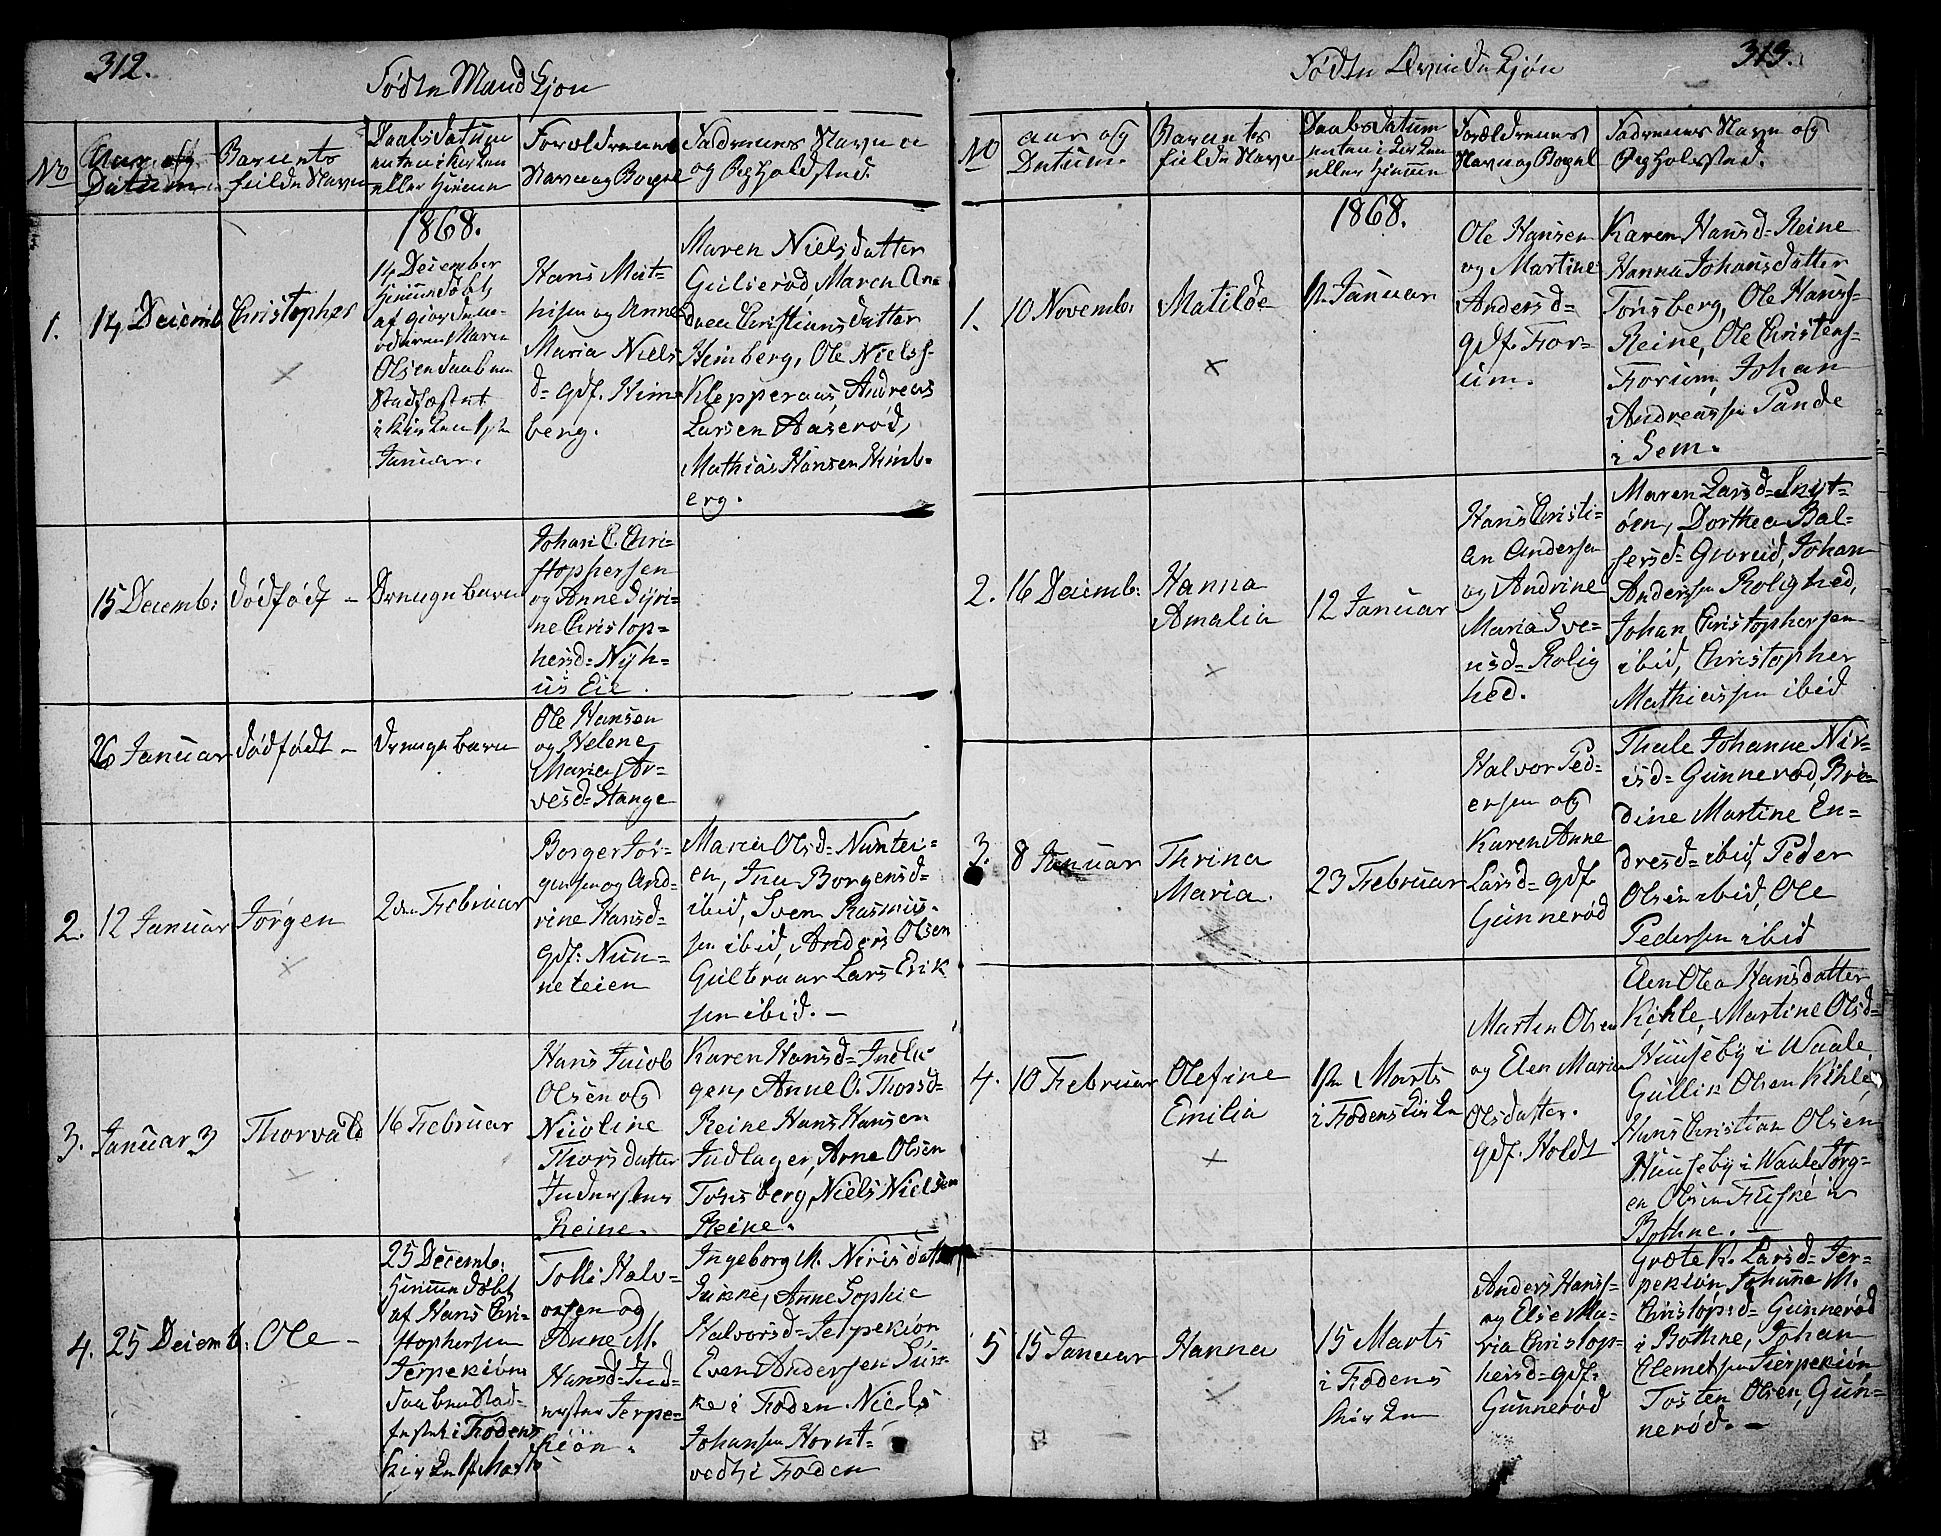 312.
Fødte Mandkjøn
No
Aar og
Datum
Barnets
fulde Navn
Daabsdatum
enten i Kirken
eller Hiemme
Forældrenes
Navne og Bopæl
Faddernes Navne
og Opholdsted.
1868.
1.
14 Decemb
Christopher
14 December
hiemmedøbt
af Giordemo-
deren Maren
Olsen daaben
Stadfæstet
i Kirken 1ste
Januar.
Hans Mat-
hisen og Anne
Maria Niels
d= gdf. Him
berg.
Maren Nielsdatter
Gulserød, Maren An-
drea Christiansdatter
Himberg, Ole Nielss-
Klepperaas, Andreas
Larsen Aaserød,
Mathias Hansen Himb-
erg.
15 Decemb:
dødfødt -
Drengebarn
Johan C. Chri-
stophersen
og Anne
ne Christop-
hersd= Nyh-
us Eie.
26 Januar
dødfødt -
Drengebarn
Ole Hansen
og Helene
Maria Ar-
vesd= Stange
2.
12 Januar
Jørgen
2den Februar
Borger Jør-
gensen og And-
rine Hansd-
gdf. Nun-
neteien
Maria Olsd= Nuntei-
en, Ina Borgersd=
ibid, Sven Rasmus-
sen ibid, Anders Olsen
Lars Erik
sen ibid. -
3.
Januar 3
Thorvald
16 Februar
Hans Jacob
Olsen og
Nicoline
Thorsdatter
Inderster
Reine.
Karen Hansd= Indla-
gen, Anne O. Thorsd=
Reine Hans Hansen
Indlager, Arne Olsen
Tønsberg, Niels Nielsen
Reine.
4.
25 Decemb:
Ole -
25 Decemb:
hiemmedøbt
af Hans Chri-
stophersen
Jerpekiøn
daaben Stad-
fæstet i Fodens
Kirke 1ste Marts
Tolli Halv-
orsen og
Anne M.
Hansd= Ind-
erster Jerpe-
kiøn.
Ingeborg M. Nirisdatter
Anne Sophie
Halvorsd= Jerpekiøn
Even Andersen
i Foden Niels
Johansen Hornt-
vedt i Foden
313.
Fødte Qvindekjøn
No
Aar og
Datum.
Barnets
fulde Navn
Daabsdatum
enten i Kirken
eller Hiemme
Forældrenes
Navne og Bopæl
Faddernes Navn og
Opholdsted.
1868.
1.
10 Novemb:
Matilde
1ste Januar
Ole Hansen
og Martine
Andersd=
gdf. For-
um.
Karen Hansd= Reine
Hanna Johansdatter
Tønsberg, Ole Hanss-
Reine, Ole Christens-
Forum Johan
Andreassen Pande
i Sem.
2.
16 Decemb:
Hanna
Amalia
12 Januar
Hans Christi-
an Andersen
og Andrine
Maria Sve-
nsd= Rolig
hed.
Maren Larsd= Skyt-
øen, Dorthea Bal-
sersd= Johan
Andersen Rolighed,
Johan Christophersen
ibid, Christopher
Mathiassen ibid
3.
8 Januar
Thrina
Maria.
23 Februar
Halvor Ped-
ersen og
Karen Anne
Larsd= gdf.
Gunnerød
Thale Johanne Nir-
isd= Gunnerød,
dine Martine En-
dresd= ibid, Peder
Olsen ibid, Ole
Pedersen ibid
4.
10 Februar
Olefine
Emilia
1ste Marts
i Fodens Kirke
Martin Olsen
og Elen Maria
Olsdatter.
gdf. Holdt
Elen Olea Hansdatter
Kihle, Martine Olsd=
Huuseby i Waale
Gullik Olsen Kihle,
Hans Christian Olsen
Huuseby i Waale Jørg-
en Olsen i
Bothne. -
5
15 Januar
Hanna
15 Marts
i Fodens
Kirke
Anders Hanss-
og Else Ma-
ria Christop-
hersd= gdf.
Gunnerød
Græte K. Larsd= Jer-
pekiøn, Johane M.
Christopsd= Gunnerød
i Bothne, Johan
Clemetsen Jerpekiøn
Tosten Olsen, Gun-
nerød. -